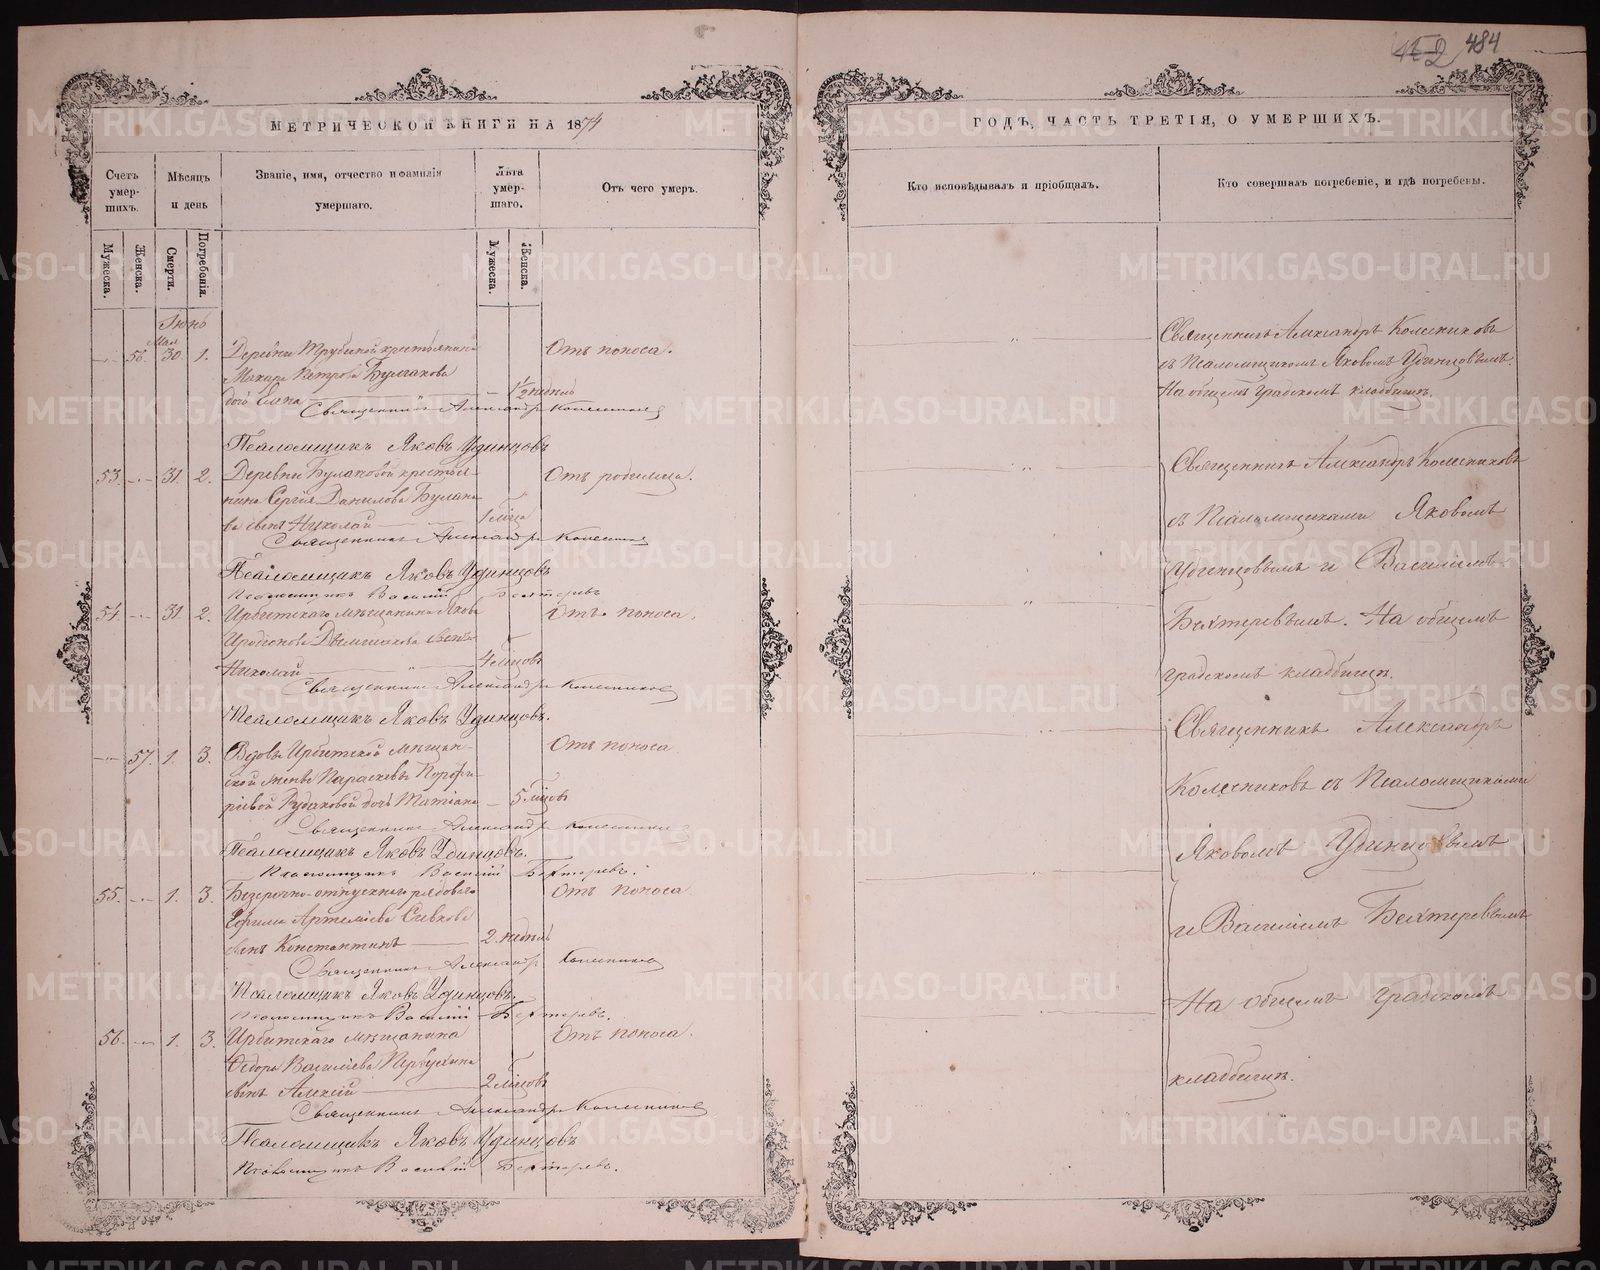 484
МЕТРИЧЕСКОЙ КНИГИ НА 1874
ГОДЪ, ЧАСТЬ ТРЕТІЯ, О УМЕРШИХЪ.
Счетъ умер-
шихъ.
Мѣсяцъ
и день
Званіе, имя, отчество и фамилія
умершаго.
Лѣта
умер-
шаго.
Отъ чего умеръ.
Кто исповѣдывалъ и пріобщалъ.
Кто совершалъ погребеніе, и гдѣ погребены.
Мужеска.
Женска.
Смерти.
Погребенія.
Мужеска.
Женска.
Іюнь
Мая
56. 30. 1. Деревни Трубиной крестьянина Отъ поноса.
Макара Петрова Булгакова
дочь Елена 1/2 недѣль
Священникъ Александръ Колесниковъ
Псаломщикъ Яковъ Удинцовъ
53. 31. 2. Деревни Булановой крестья- Отъ родимца.
нина Сергія Данилова Булано-
ва сынъ Николай 1 мѣсца
Священникъ Александръ Колесниковъ
Псаломщикъ Яковъ Удинцовъ
Псаломщикъ Василій Бехтеревъ
54. 31. 2. Ирбитскаго мѣщанина Якова Отъ поноса.
сынъ
Николай 4 мѣсцовъ
Священникъ Александръ Колесниковъ
Псаломщикъ Яковъ Удинцовъ.
57. 1. 3. Вдовы Ирбитской мѣщан- Отъ поноса
ской жены Параскевы Порфи-
ріевой Рудаковой дочь Татіана 5 мѣсцовъ
Священникъ Александръ Колесниковъ
Псаломщикъ Яковъ Удинцовъ.
Псаломщикъ Василій Бехтеревъ.
55. 1. 3. Безсрочно-отпускнаго рядоваго Отъ поноса
Ефима Артеміева Сивкова
сынъ Константинъ 2. недѣль
Священникъ Александръ Колесниковъ
Псаломщикъ Яковъ Удинцовъ.
Псаломщикъ Василій Бехтеревъ.
56. 1. 3. Ирбитскаго мѣщанина Отъ поноса.
Ѳедора Васильева
сынъ Алексій 2 мѣсцовъ
Священникъ Александръ Колесниковъ
Псаломщикъ Яковъ Удинцовъ
Псаломщикъ Василій Бехтеревъ.
Священникъ Александръ Колесниковъ
съ Псаломщикомъ Яковомъ Удинцовымъ.
На общемъ градскомъ кладбищѣ.
Священникъ Александръ Колесниковъ
съ Псаломщиками Яковомъ
Удинцовымъ и Василіемъ
Бехтеревымъ. На общемъ
градскомъ кладбищѣ.
Священникъ Александръ
Колесниковъ съ Псаломщиками
Яковомъ Удинцовымъ
и Василіемъ Бехтеревымъ
На общемъ градскомъ
кладбищѣ.
METRIKI.GASO-URAL.RU